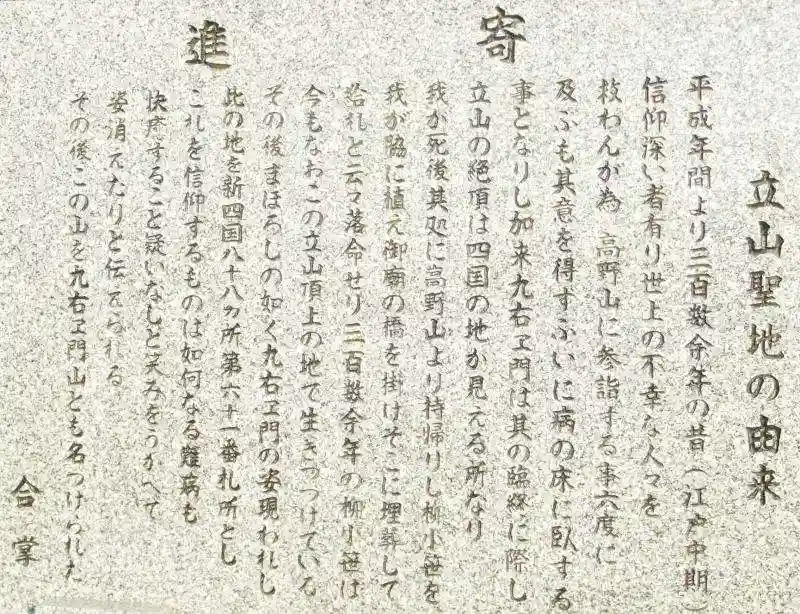 寄進
立山聖地の由来
平成年間より三百数余年の昔(江戸中期)
信仰深い者有り世上の不幸な人々を
枝わんが為、高野山に参詣する事六度に
及ぶも其意を得すぶいに病の床に臥する
事となりし加来九右ヱ門は其の臨終に際し
立山の絶頂は四国の地か見える所なり
我か死後其処に高野山より持帰りし柳小笹を
我が脇に植え御廟の橋を掛けそこに埋葬して
給れと云々落命せり三百数余年の柳小笹は
今もなおこの立山頂上の地て生きつつけている
その後まほろしの如く九右ヱ門の姿現われし
此の地を新四国八十八ヵ所第六十一番札所とし
これを信仰するものは如何なる難病も
快癒すること疑いなしと笑みをうかへて
姿消えたりと伝えられる
その後この山を九右ヱ門山とも名つけられた
合掌